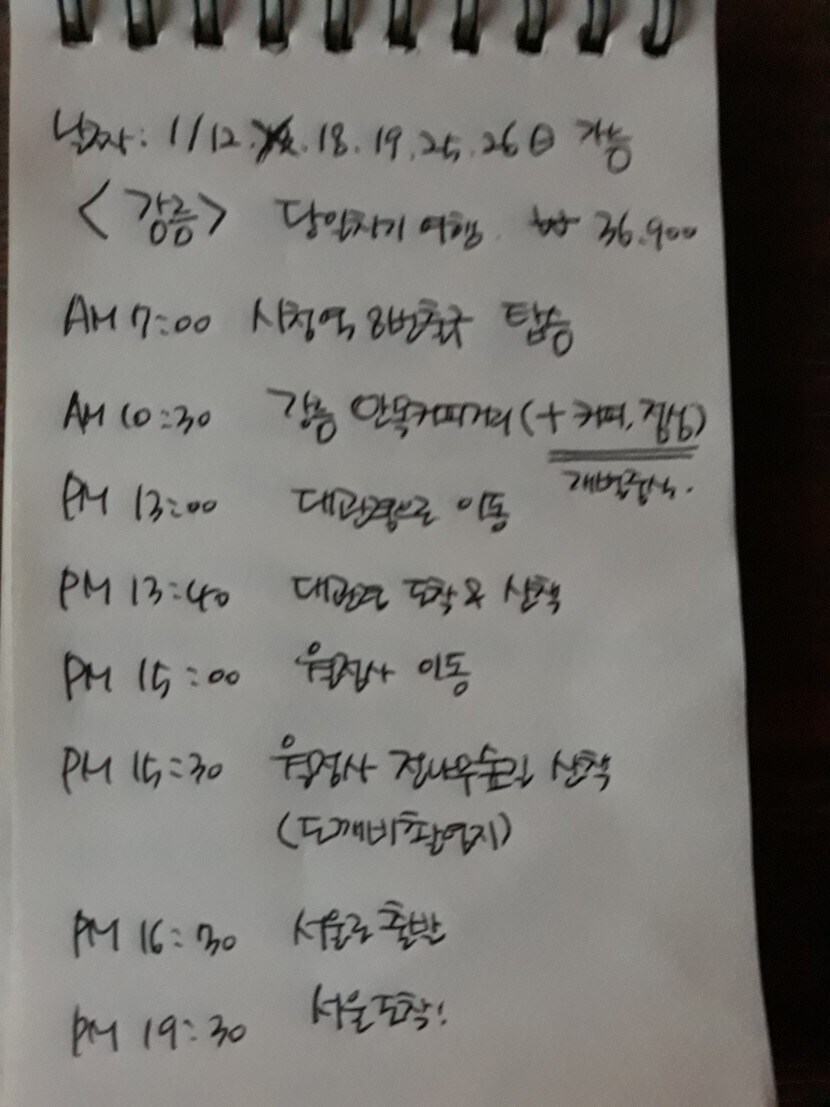 날짜: 1/12. 18. 19. 25. 26日 가능
<강릉> 당일치기 여행. ₩ 36.900
AM 7:00 시청역 8번출구 탑승
AM 10:30 강릉 안목커피거리 (+ 커피, 점심)
개별중식.
PM 13:00 대관령으로 이동
PM 13:40 대관령 도착 & 산책
PM 15:00 월정사 이동
PM 15:30 월정사 전나무숲길 산책
(도깨비촬영지)
PM 16:30 서울로 출발
PM 19:30 서울도착!